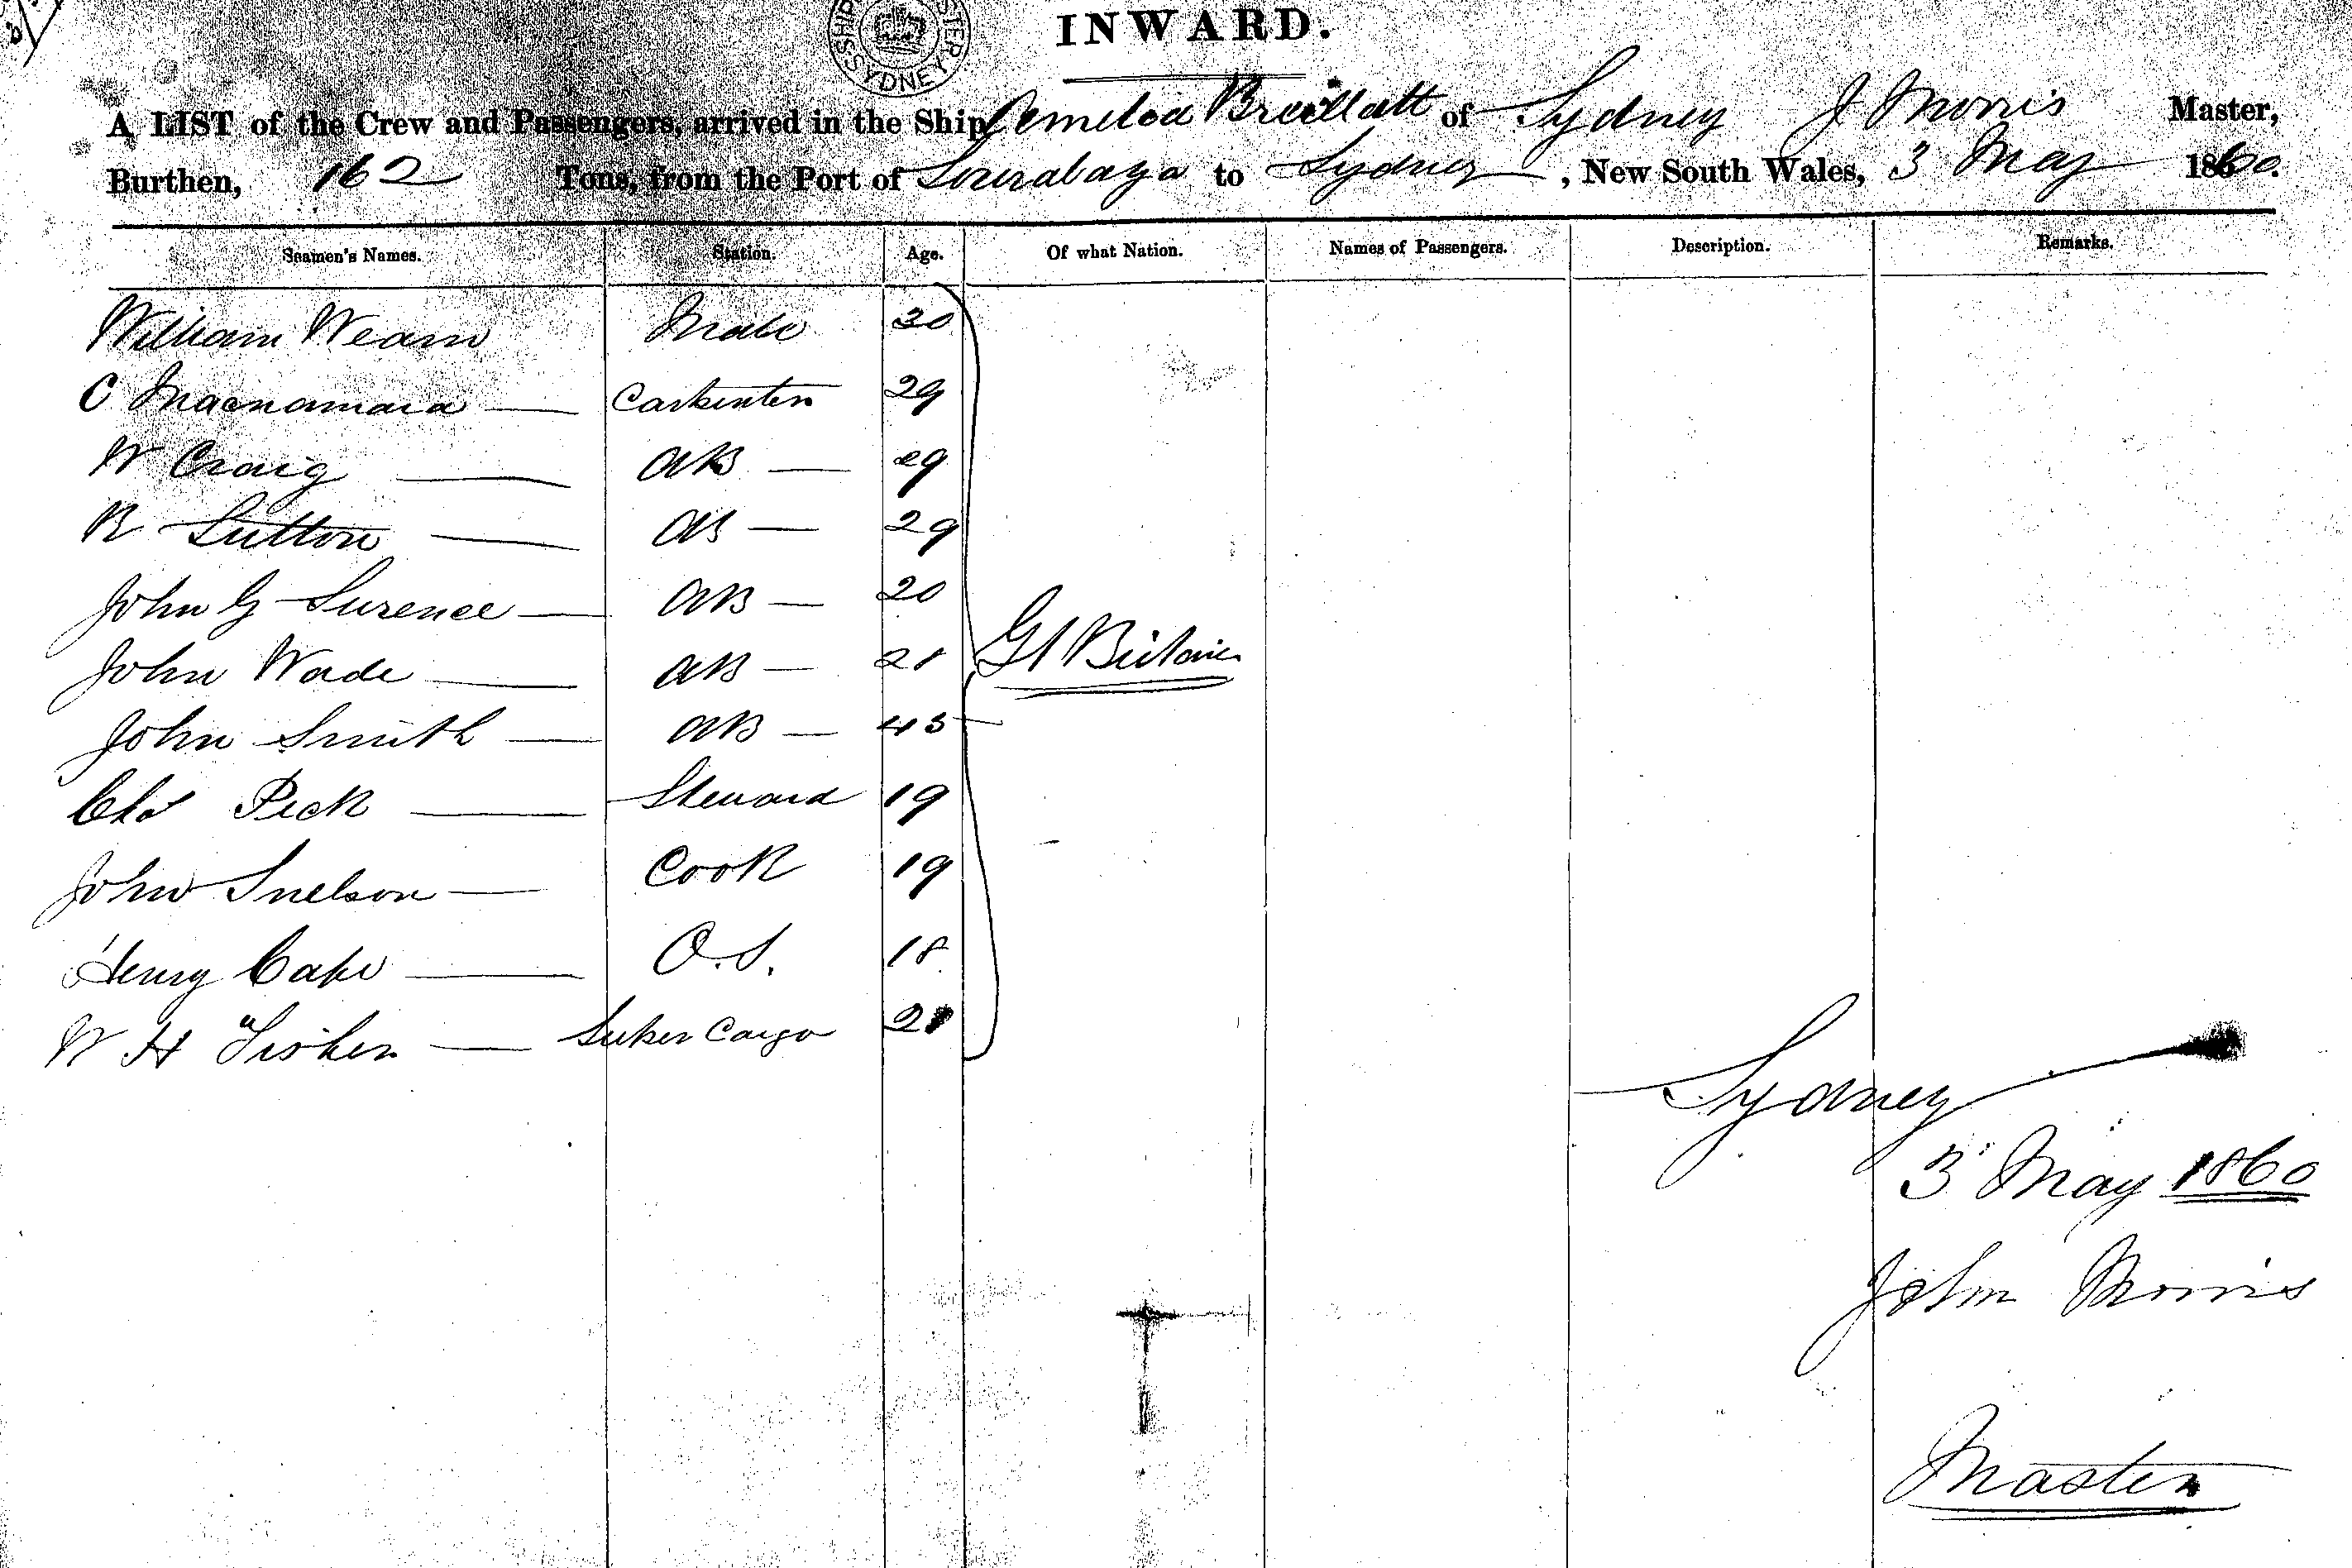 INWARD.
SHIP STER SYDNEY
A LIST of the Crew and Passengers, arrived in the Ship Breillatt of Sydney J Morris Master,
Burthen, 162 Tons, from the Port of Sourabaya to Sydney, New South Wales, 3 May 1860.
Seamen's Names. Station. Age. Of what Nation. Names of Passengers. Description. Remarks.
William Wearn Mate 30
C Macnamara Carpenter 29
W Craig AB 29
R Sutton AB 29
John G Surence AB 20
John Wade AB 21
Gt Britain
John Smith AB 45
Chs Peck Steward 19
John Snelson Cook 19
Henry Cape O.S. 18
W H Fisher Super Cargo 21
Sydney
3 May 1860
John Morris
Master